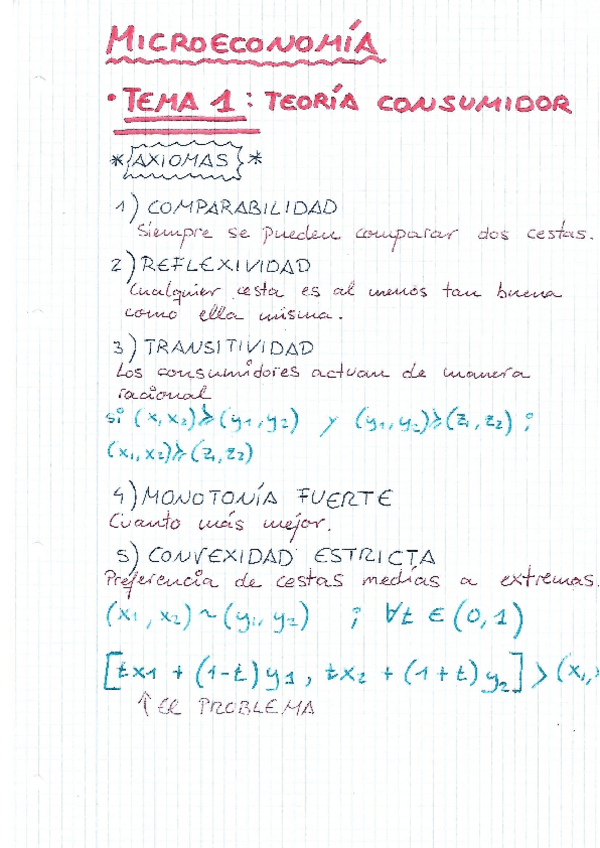 MICROECONOMÍA
• TEMA 1: TEORÍA CONSUMIDOR
* AXIOMAS *
1) COMPARABILIDAD
Siempre se pueden comparar dos cestas.
2) REFLEXIVIDAD
Cualquier cesta es al menos tan buena
como ella misma.
3) TRANSITIVIDAD
Los consumidores actuan de manera
racional
si (x, x2) ≽ (y1, y2) y (y1, y2) ≽ (z1, z2) ;
(x1, x2) ≽ (z1, z2)
4) MONOTONÍA FUERTE
Cuanto más mejor.
5) CONVEXIDAD ESTRICTA
Preferencia de cestas medias a extremas.
(x1, x2) ~ (y1, y2) ; ∀t ∈ (0,1)
[tx1 + (1-t) y1, tx2 + (1+t) y2] > (x1,
PROBLEMA